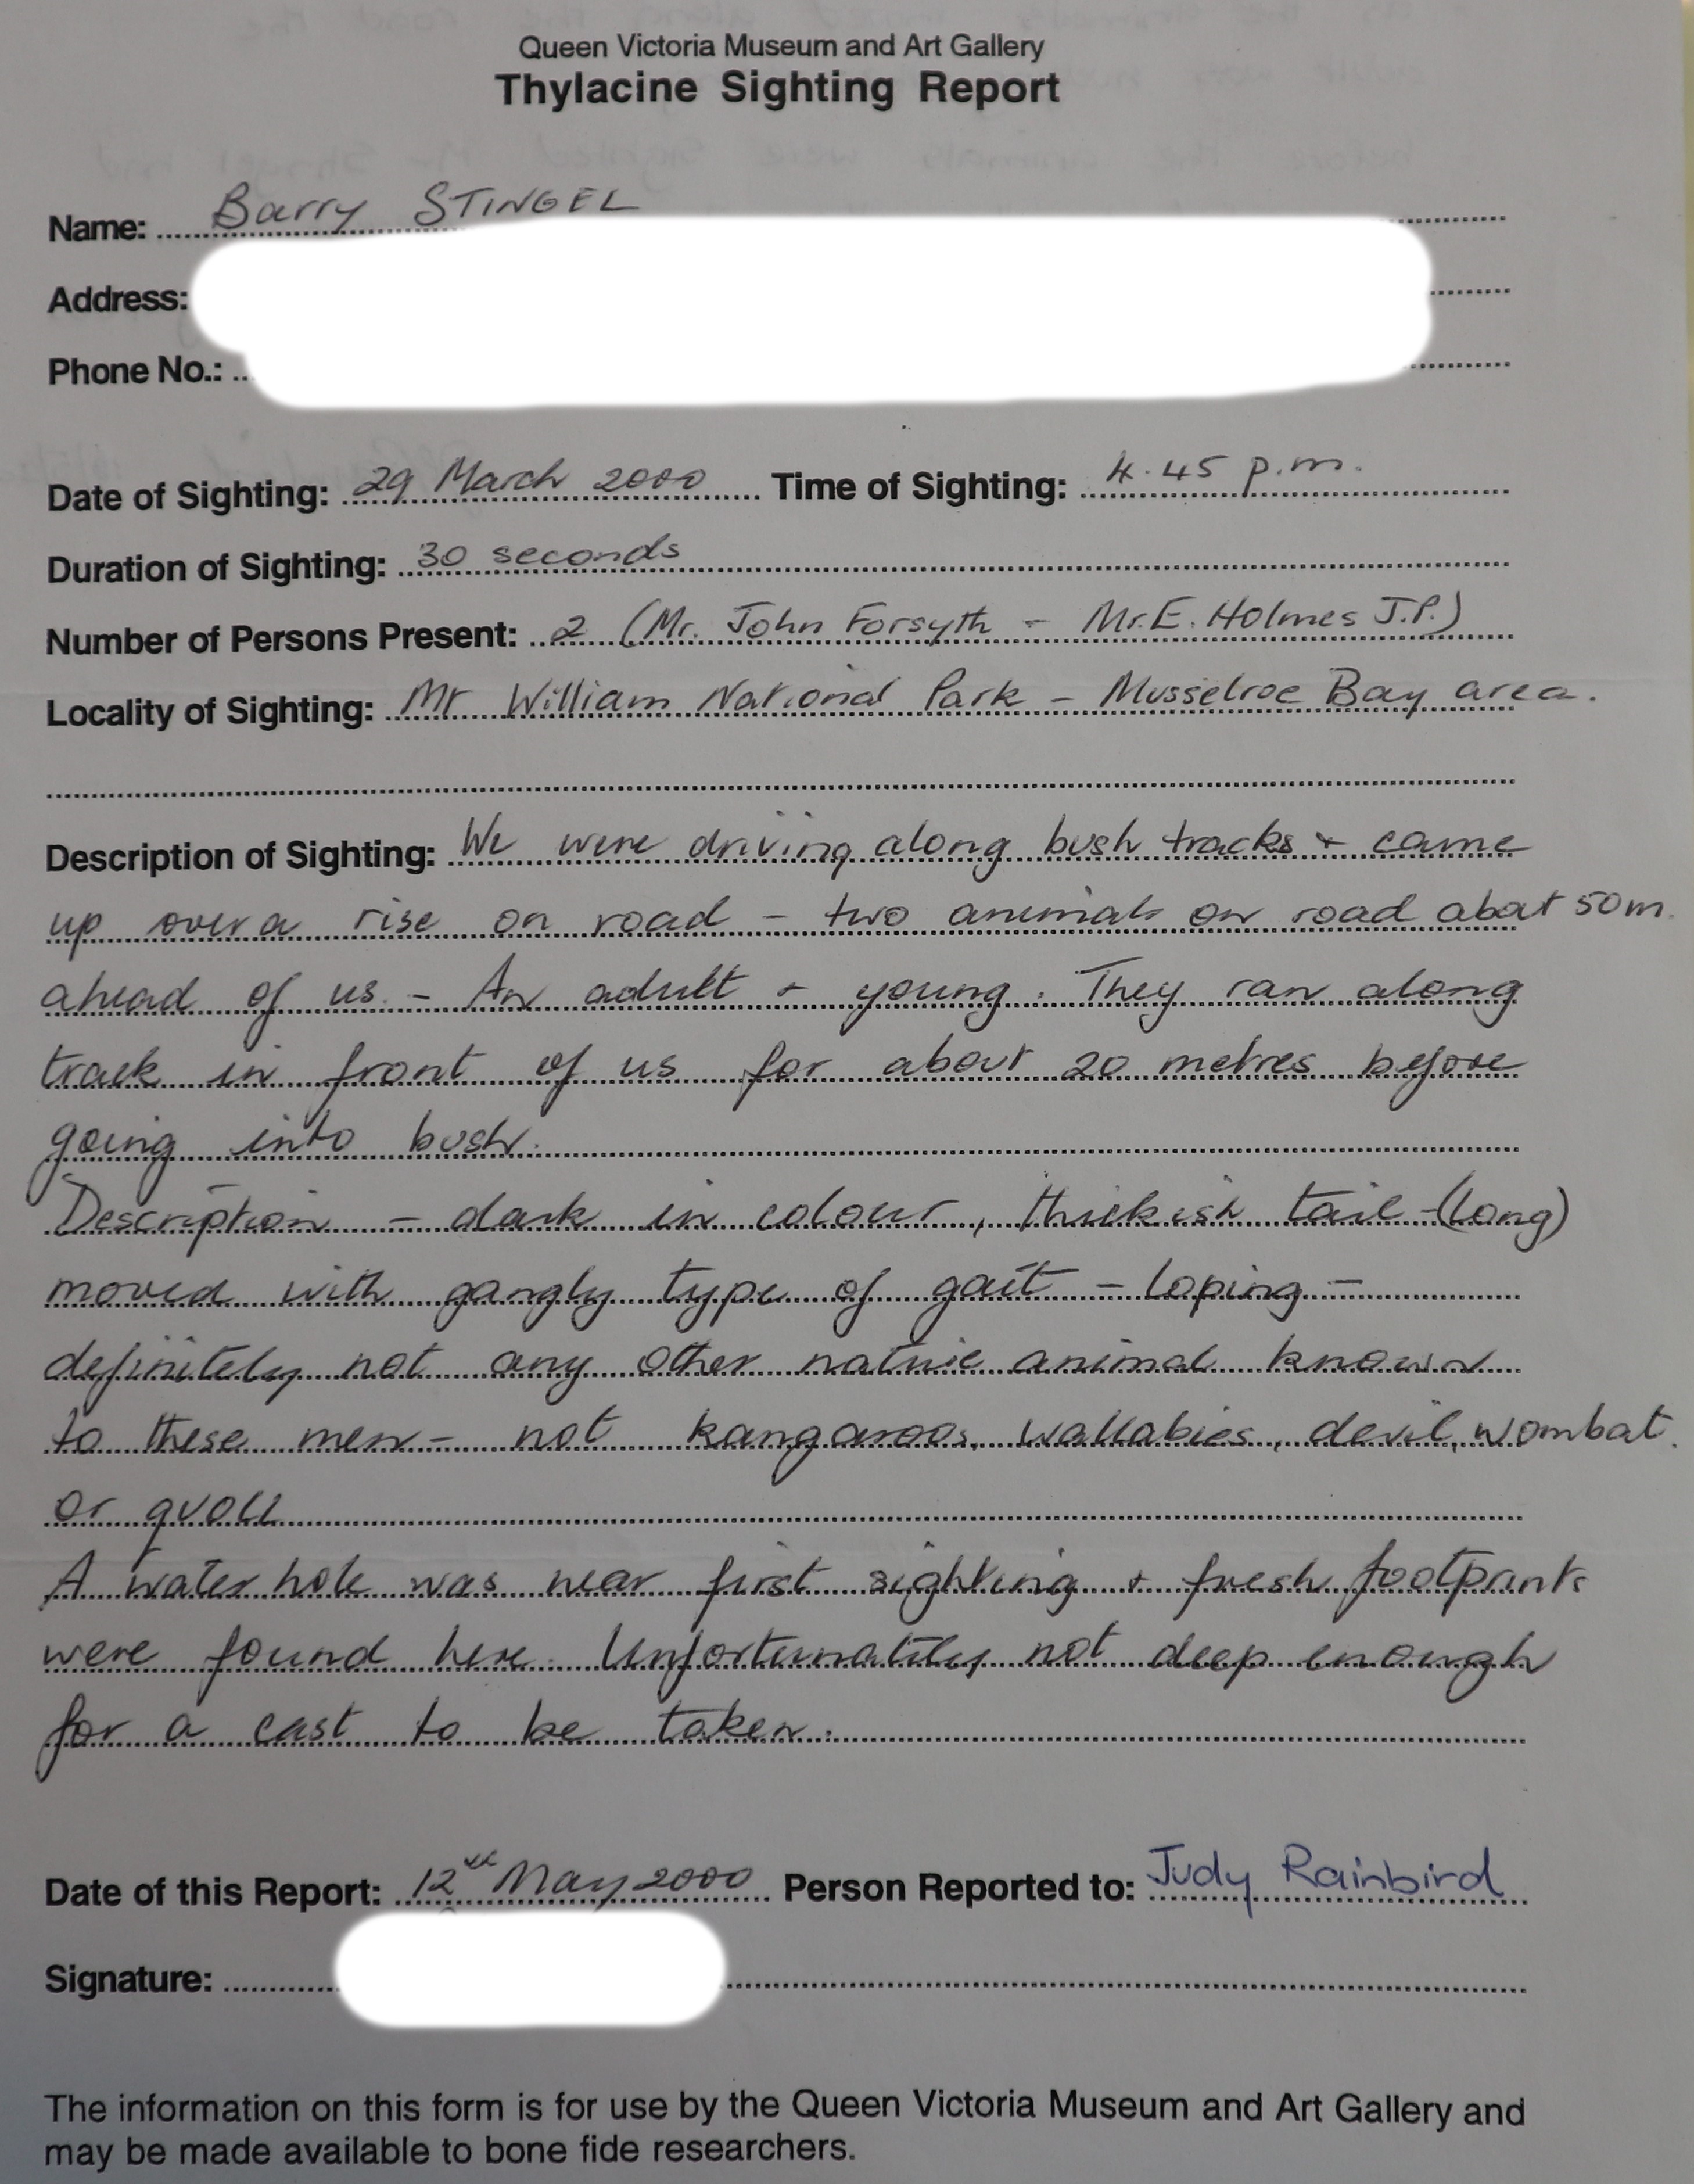 Queen Victoria Museum and Art Gallery
Thylacine Sighting Report
Name: Barry STINGEL
Address:
Phone No.:
Date of Sighting: 29 March 2000 Time of Sighting: 4.45 p.m.
Duration of Sighting: 30 seconds
Number of Persons Present: 2 (Mr. John Forsyth - Mr. E. Holmes J.P.)
Locality of Sighting: Mt William National Park - Musselroe Bay area.
Description of Sighting: We were driving along bush tracks + came
up over a rise on road - two animals on road about 50m.
ahead of us - An adult + young. They ran along
track in front of us for about 20 metres before
going into bush.
Description - dark in colour, thickish tail - (long)
moved with gangly type of gait - loping -
definitely not any other native animal known
to these men - not kangaroos, wallabies, devil, wombat.
or quoll
A water hole was near first sighting + fresh footprints
were found here. Unfortunately not deep enough
for a cast to be taken.
Date of this Report: 12th May 2000 Person Reported to: Judy Rainbird
Signature:
The information on this form is for use by the Queen Victoria Museum and Art Gallery and
may be made available to bone fide researchers.